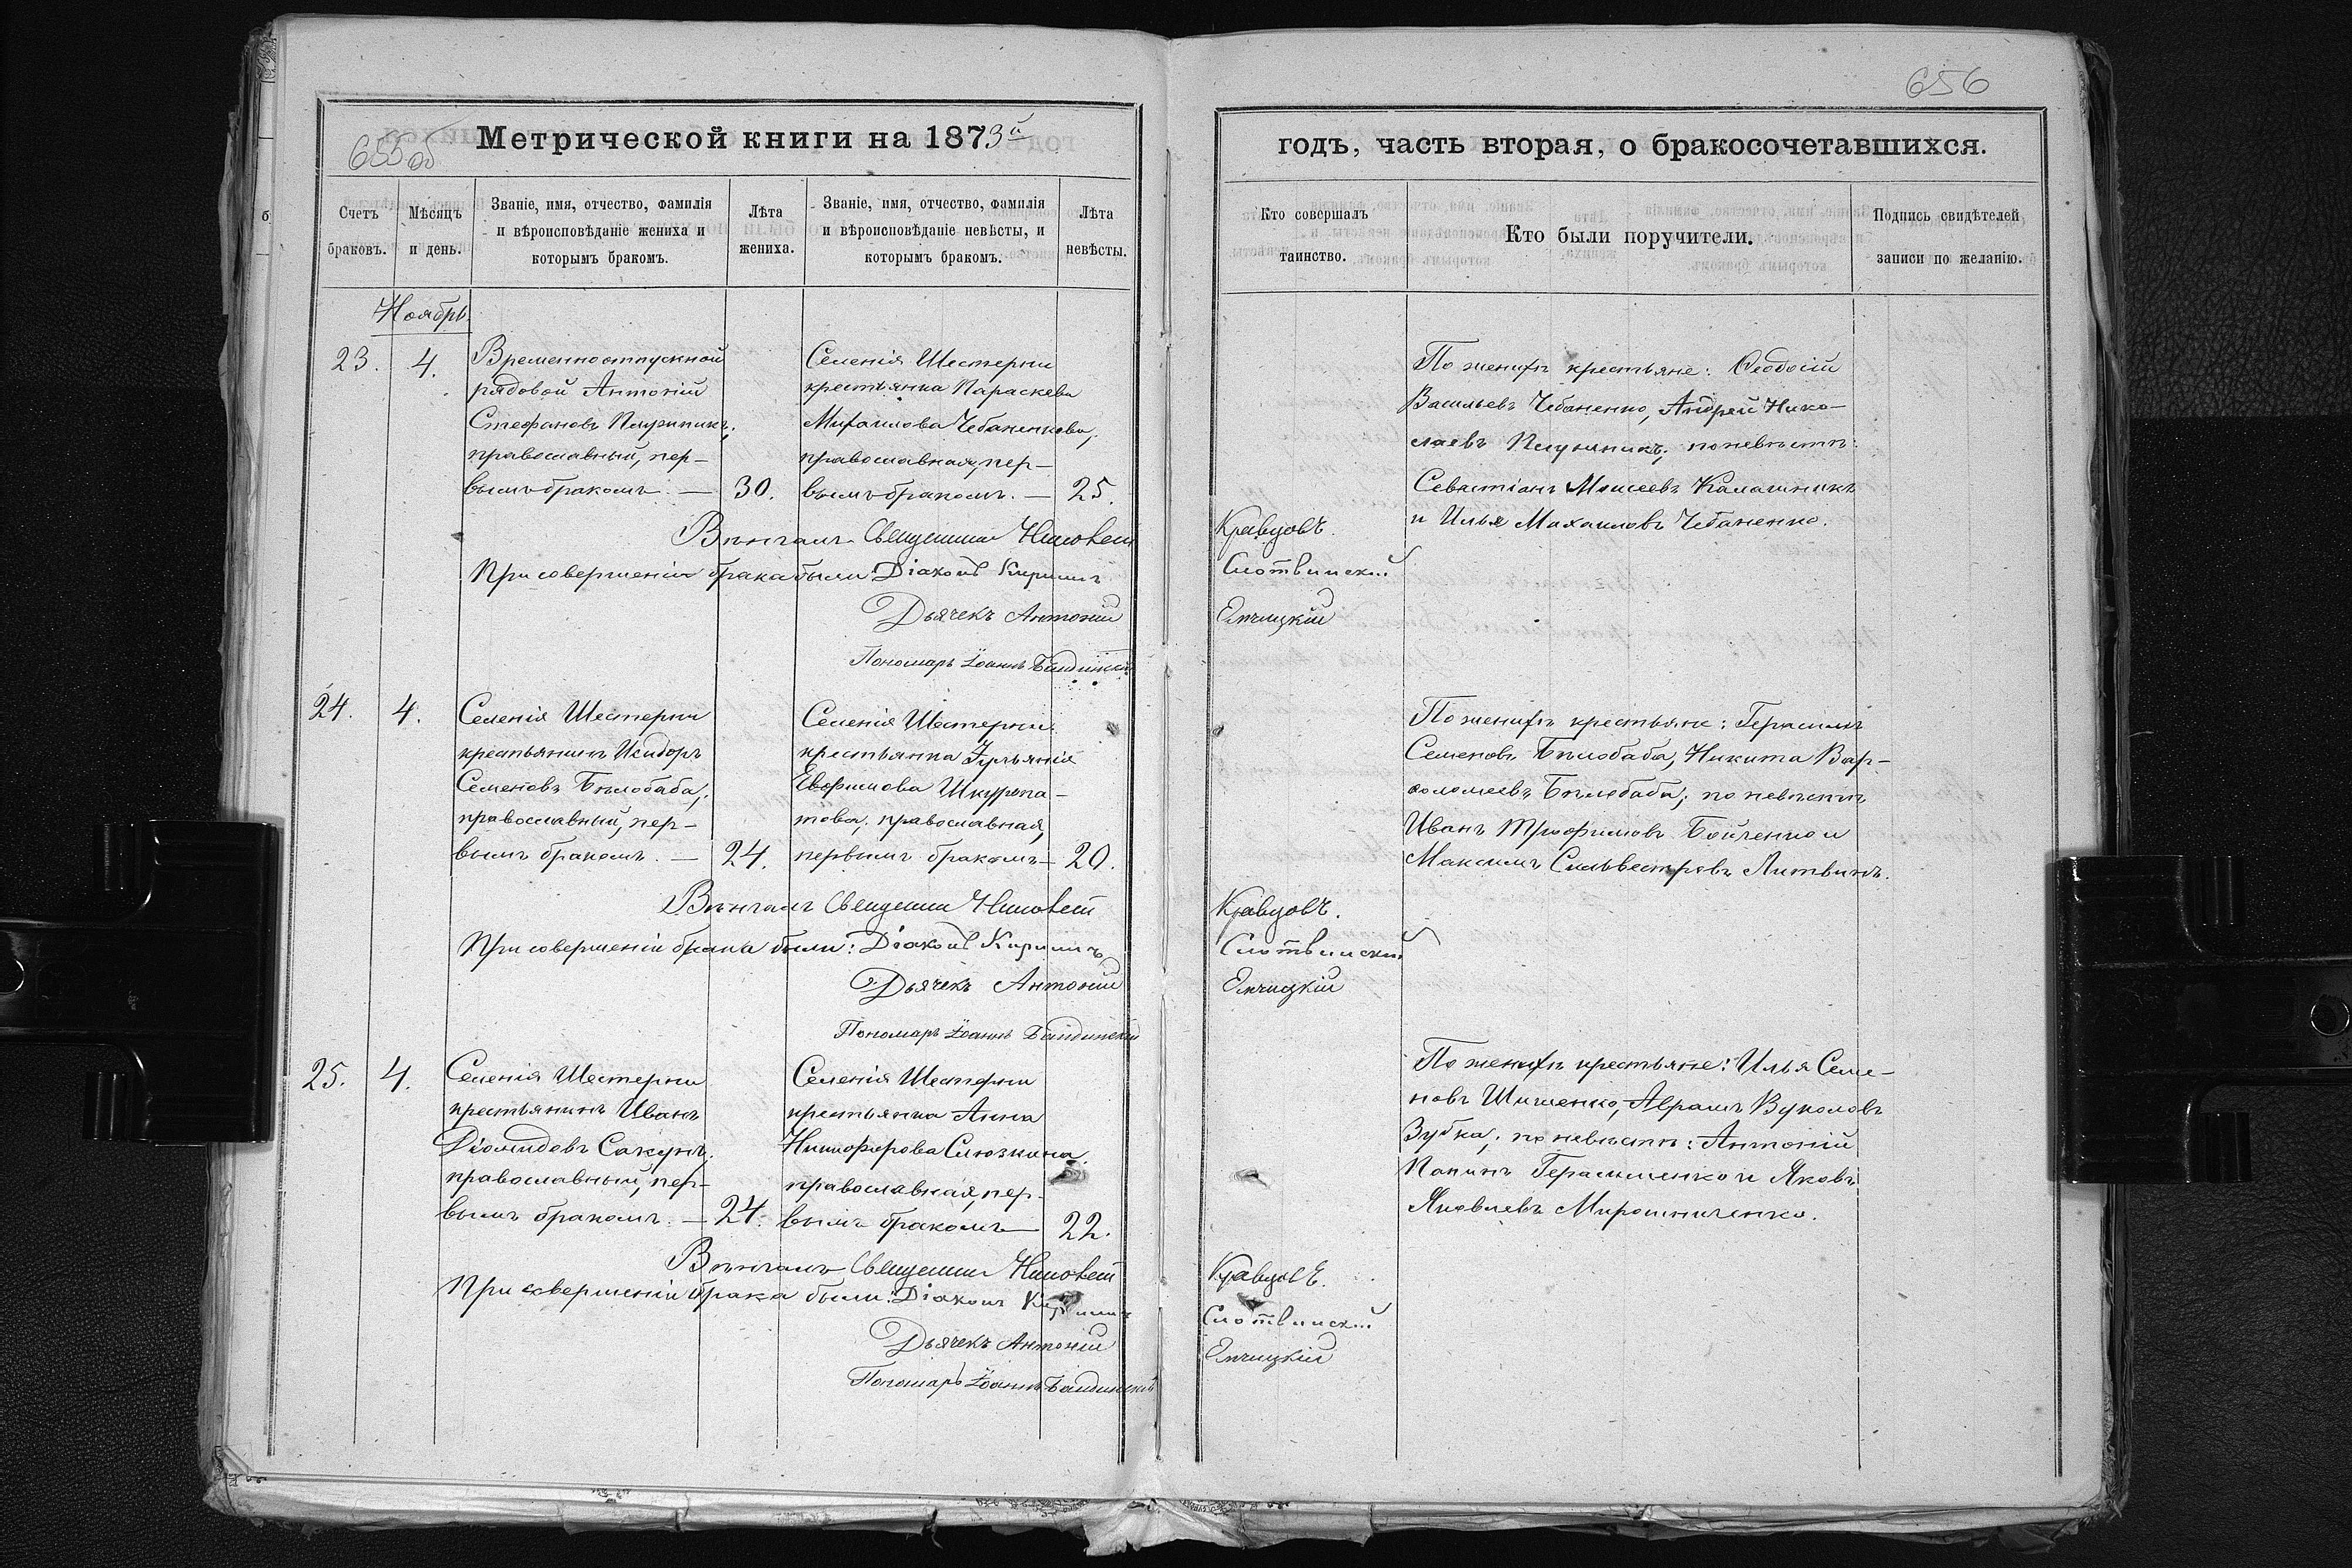 656
655об
Метрической книги на 1873й
годъ, часть вторая, о бракосочетавшихся.
Счетъ браковъ.
Мѣсяцъ и день.
Званіе, имя, отчество, фамилія и вѣроисповѣданіе жениха и которымъ бракомъ.
Лѣта жениха.
Званіе, имя, отчество, фамилія и вѣроисповѣданіе невѣсты, и которымъ бракомъ.
Лѣта невѣсты.
Кто совершалъ таинство.
Кто были поручители.
Подпись свидѣтелей записи по желанію.
Ноябрь.
23.
4.
Временноотпускной
рядовой Антоній
Стефановъ
православный, пер-
вымъ бракомъ. — 30.
Селенія Шестерни
крестьянка Параскева
Михаилова Чебаненкова,
православная, пер-
вымъ бракомъ. — 25.
По женихѣ крестьяне: Ѳеодосій
Васильевъ Чебаненко, Андрей Нико-
лаевъ по невѣстѣ:
Севастіанъ Моисеевъ Калашникъ
и Илья Михаиловъ Чебаненко.
Вѣнчалъ Священникъ Кравцовъ.
При совершеніи брака были: Діаконъ Кириллъ Слотвинскій
Дьячекъ Антоній Елчицкій
Пономарь Іоаннъ
24.
4.
Селенія Шестерни
крестьянинъ Исидоръ
Семеновъ Бѣлобаба,
православный, пер-
вымъ бракомъ. — 24.
Селенія Шестерни
крестьянка Іульянія
Евфимова Шкурпа-
това, православная,
первымъ бракомъ — 20.
По женихѣ крестьяне: Герасимъ
Семеновъ Бѣлобаба, Никита Вар-
ѳоломеевъ Бѣлобаба; по невѣстѣ
Иванъ Трофимовъ Бойченко и
Максимъ Сильвестровъ Литвинъ.
Вѣнчалъ Священникъ Кравцовъ.
При совершеніи брака были: Діаконъ Кириллъ Слотвинскій
Дьячекъ Антоній Елчицкій
Пономарь Іоаннъ
25.
4.
Селенія Шестерни
крестьянинъ Иванъ
Діомидовъ Сакунъ,
православный, пер-
вымъ бракомъ. — 24.
Селенія Шестерни
крестьянка Анна
Никифорова Слюзкина,
православная, пер-
вымъ бракомъ — 22.
По женихѣ крестьяне: Илья Семе-
новъ Шишенко, Авраамъ Вуколовъ
Зубка; по невѣстѣ: Антоній
Герасименко и Яковъ
Яковлевъ Мирошниченко.
Вѣнчалъ Священникъ Кравцовъ.
При совершеніи брака были: Діаконъ Кириллъ Слотвинскій
Дьячекъ Антоній Елчицкій
Пономарь Іоаннъ